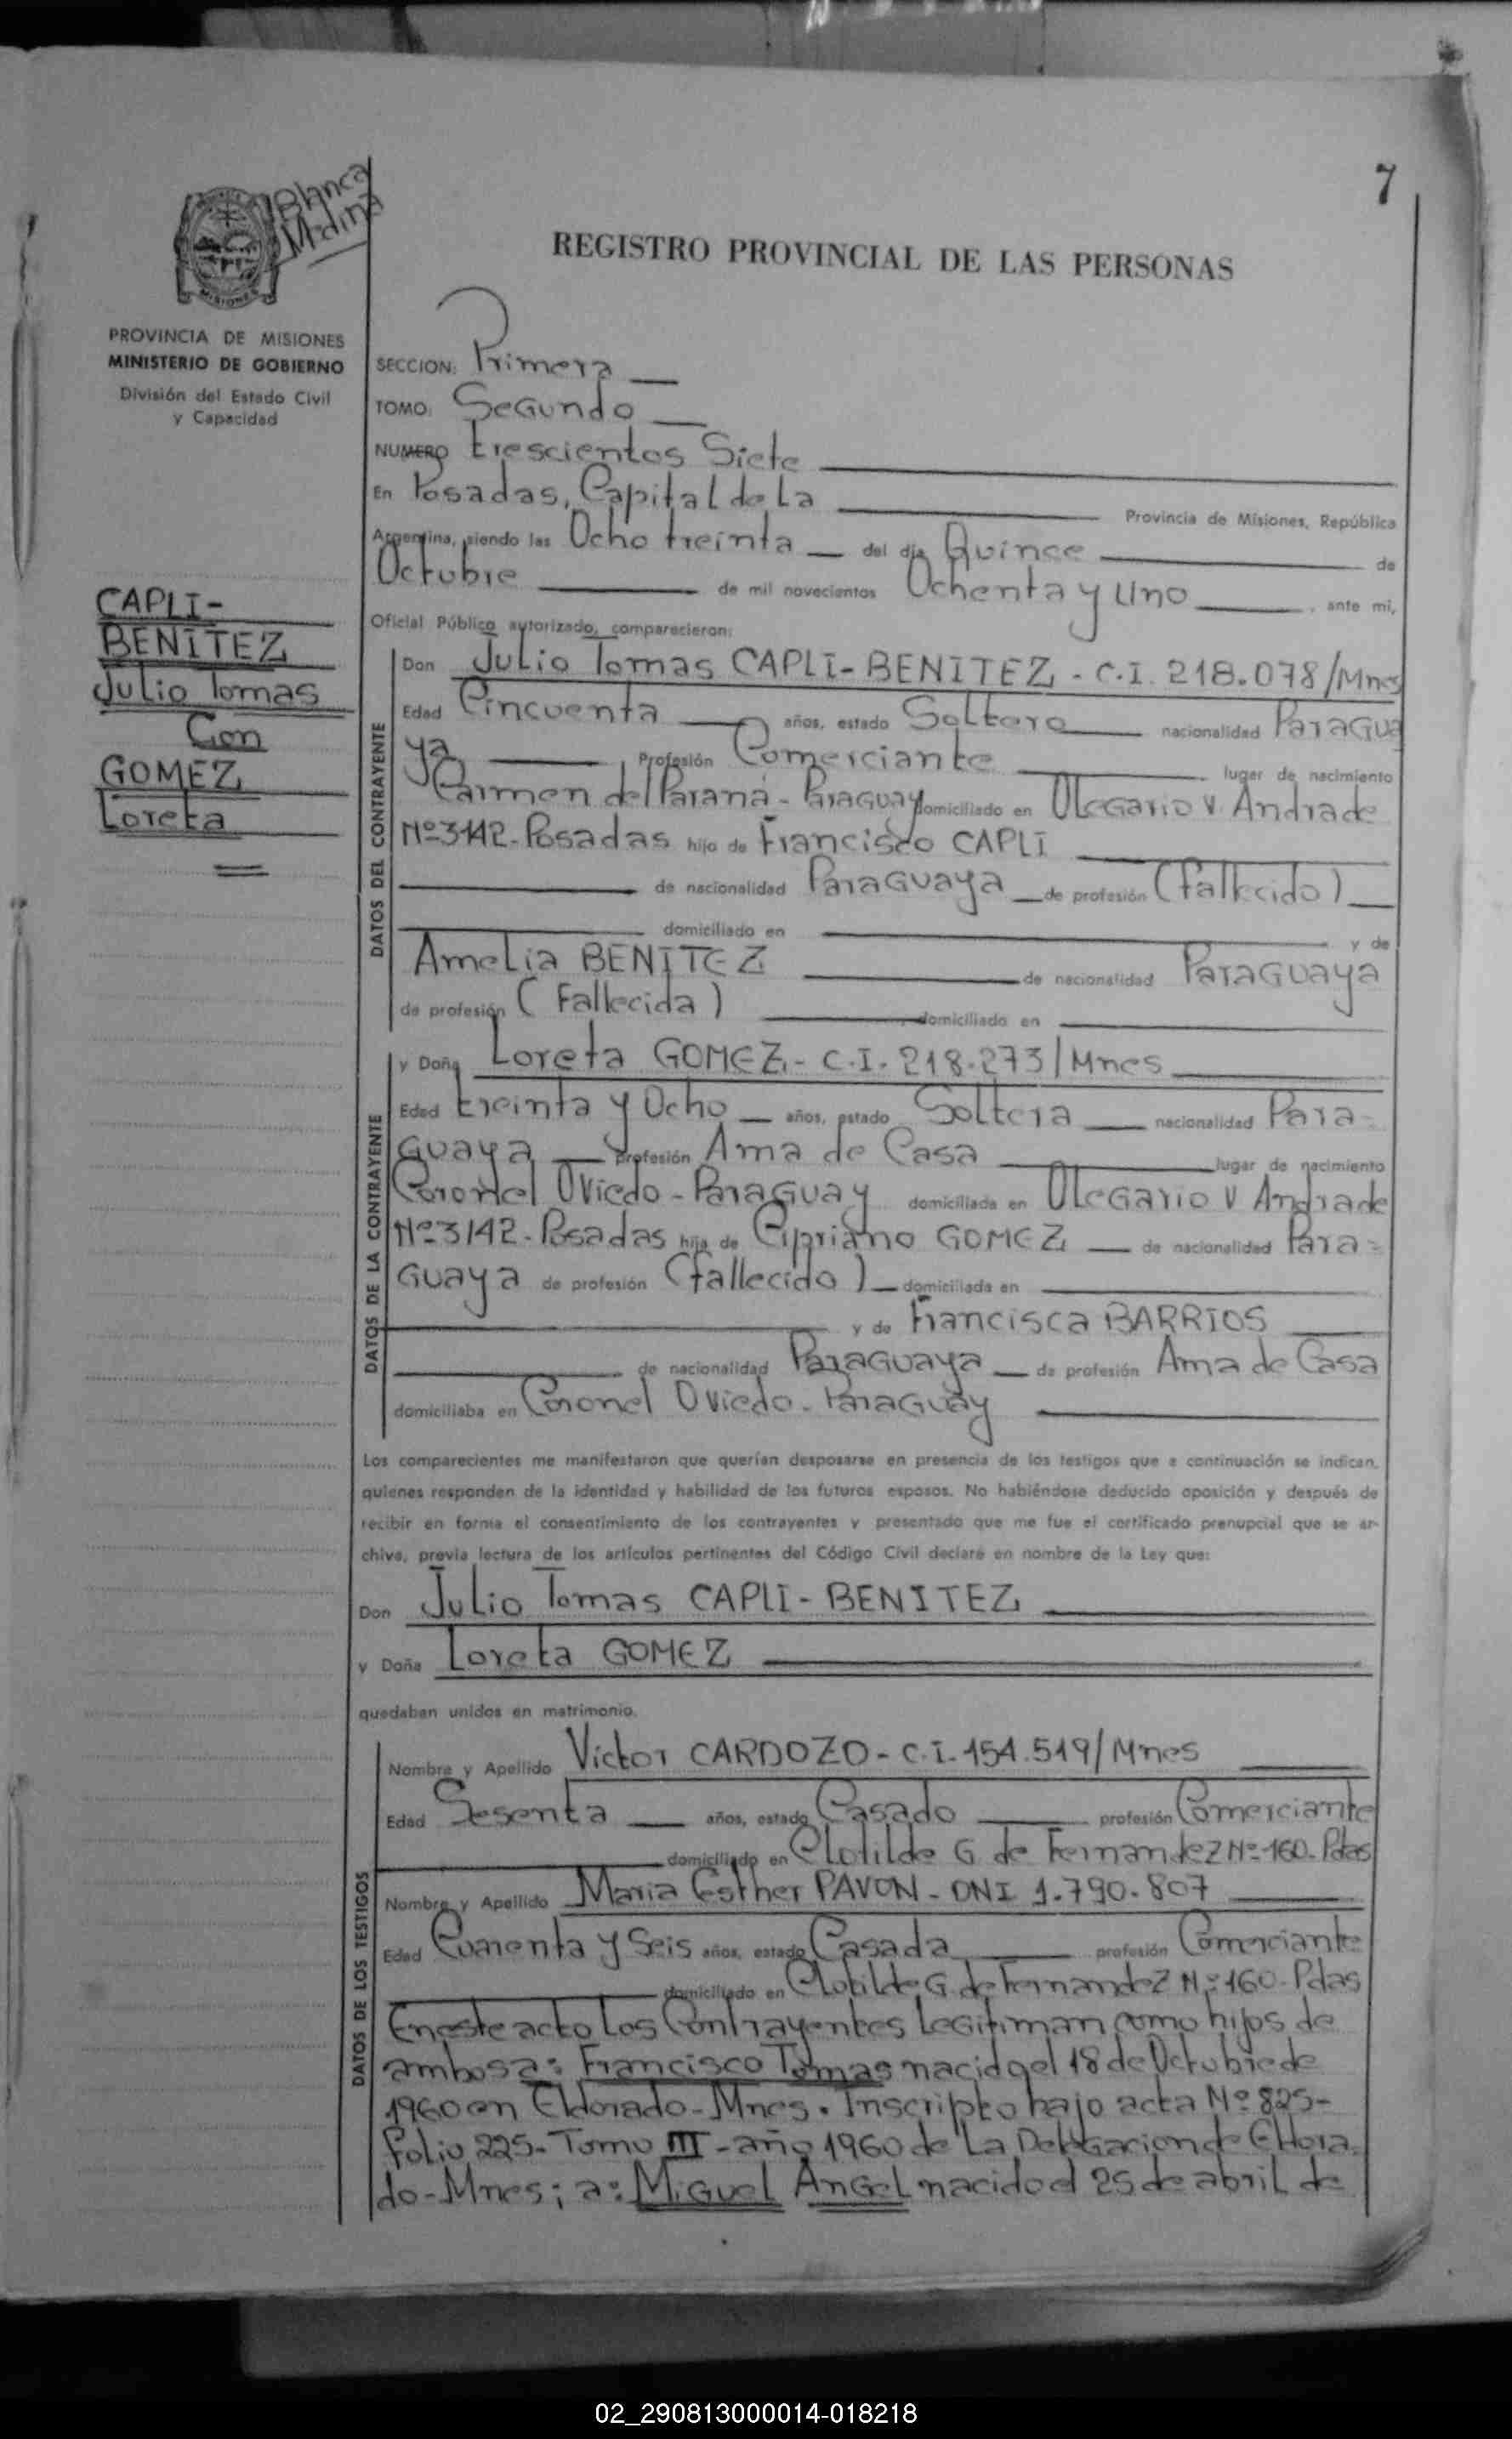 7
Blanca
Medina
MISIONES
REGISTRO PROVINCIAL DE LAS PERSONAS
PROVINCIA DE MISIONES
MINISTERIO DE GOBIERNO
División del Estado Civil
y Capacidad
CAPLI-
BENITEZ
Julio Tomas
Con
GOMEZ
Loreta
SECCION: Primera
TOMO: Segundo
NUMERO trescientos Siete
En Posadas, Capital de La Provincia de Misiones, República
Argentina, siendo las Ocho treinta del día Quince de
Octubre de mil novecientos Ochenta y Uno, ante mi,
Oficial Público autorizado, comparecieron:
DATOS DEL CONTRAYENTE
Don Julio Tomas CAPLI-BENITEZ - C.I. 218.078/Mnes
Edad Cincuenta años, estado Soltero nacionalidad Paragua
ya Profesión Comerciante lugar de nacimiento
Carmen del Paraná - Paraguay domiciliado en Olegario V. Andrade
Nº 3142 - Posadas hijo de Francisco CAPLI
de nacionalidad Paraguaya de profesión (Fallecido)
domiciliado en y de
Amelia BENITEZ de nacionalidad Paraguaya
de profesión (Fallecida) domiciliado en
DATOS DE LA CONTRAYENTE
y Doña Loreta GOMEZ - C.I. 218.273/Mnes
Edad treinta y Ocho años, estado Soltera nacionalidad Para-
Guaya profesión Ama de Casa lugar de nacimiento
Coronel Oviedo - Paraguay domiciliada en Olegario V Andrade
Nº 3142 - Posadas hija de Cipriano GOMEZ de nacionalidad Para=
Guaya de profesión (fallecido) domiciliada en
y de Francisca BARRIOS
de nacionalidad Paraguaya de profesión Ama de Casa
domiciliaba en Coronel Oviedo - Paraguay
Los comparecientes me manifestaron que querían desposarse en presencia de los testigos que a continuación se indican,
quienes responden de la identidad y habilidad de los futuros esposos. No habiéndose deducido oposición y después de
recibir en forma el consentimiento de los contrayentes y presentado que me fue el certificado prenupcial que se ar-
chiva, previa lectura de los artículos pertinentes del Código Civil declaré en nombre de la Ley que:
Don Julio Tomas CAPLI - BENITEZ
y Doña Loreta GOMEZ
quedaban unidos en matrimonio.
DATOS DE LOS TESTIGOS
Nombre y Apellido Victor CARDOZO - C.I. 154.519/Mnes
Edad Sesenta años, estado Casado profesión Comerciante
domiciliado en Clotilde G de Fernandez Nº 160 - Pdas
Nombre y Apellido Maria Esther PAVON - DNI 1.790.807
Edad Cuarenta y Seis años, estado Casada profesión Comerciante
domiciliado en Clotilde G. de Fernandez Nº 160 - Pdas
En este acto Los Contrayentes Legitiman como hijos de
ambos a: Francisco Tomas nacido el 18 de Octubre de
1960 en Eldorado - Mnes. Inscripto bajo acta Nº 825-
folio 225 - Tomo III - año 1960 de La Delegacion de Eldora-
do - Mnes; a: Miguel Angel nacido el 25 de abril de
02_290813000014-018218